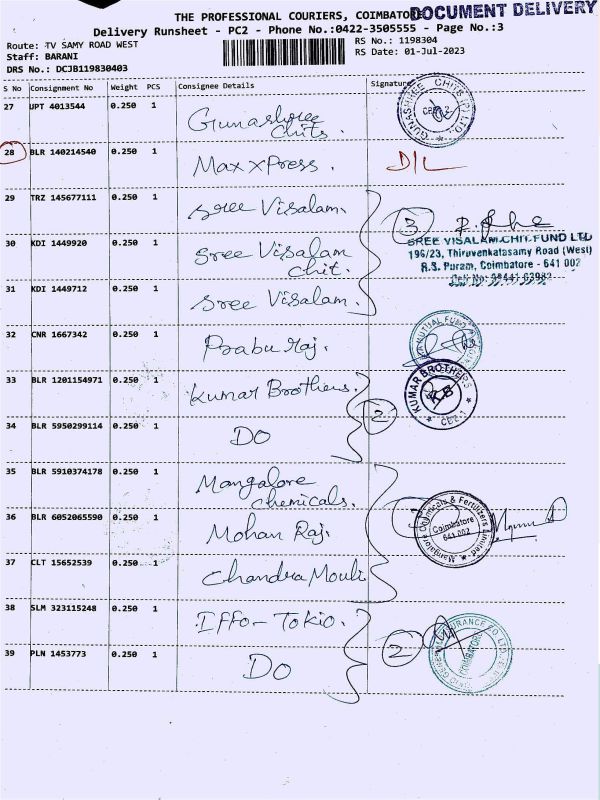 THE PROFESSIONAL COURIERS, COIMBATO
DOCUMENT DELIVERY
Delivery Runsheet - PC2 - Phone No.:0422-3505555 - Page No.:3
Route: TV SAMY ROAD WEST
RS No.: 1198304
Staff: BARANI
RS Date: 01-Jul-2023
DRS No.: DCJB119830403
S No Consignment No Weight PCS Consignee Details Signature
27 JPT 4013544 0.250 1
Gunashree
Chits.
GUNASHREE CHITS (P) LTD. CBE-2
28 BLR 140214540 0.250 1
Max xPress. D/L
29 TRZ 145677111 0.250 1
Sree Visalam.
3
30 KDI 1449920 0.250 1
Sree Visalam
Chit.
SREE VISALAM CHIT FUND LTD
196/23, Thiruvenkatasamy Road (West)
R.S. Puram, Coimbatore - 641 002
31 KDI 1449712 0.250 1
Sree Visalam.
32 CNR 1667342 0.250 1
Prabu Raj.
MUTUAL FUND
33 BLR 1201154971 0.250 1
Kumar Brothers.
2
KUMAR BROTHERS
34 BLR 5950299114 0.250 1
DO
35 BLR 5910374178 0.250 1
Mangalore
Chemicals.
36 BLR 6052065590 0.250 1
Mohan Raj.
3
Mangalore Chemicals & Fertilizers Limited
Coimbatore
641 002
37 CLT 15652539 0.250 1
Chandra Mouli
38 SLM 323115248 0.250 1
Iffo - Tokio.
2
39 PLN 1453773 0.250 1
DO
INSURANCE CO. LTD.
COIMBATORE